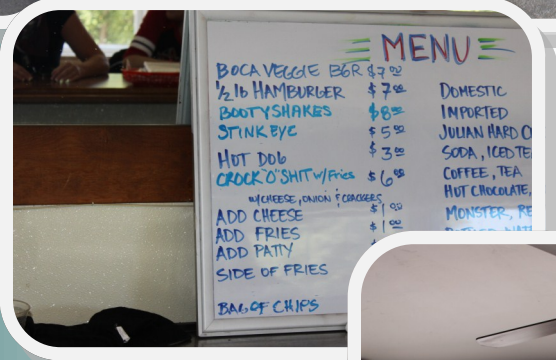 MENU
BOCA VEGGIE BGR $7.00
1/2 lb HAMBURGER $7.00
BOOTYSHAKES $8.00
STINKEYE $5.00
HOT DOG $3.00
CROCK "O" SHIT w/Fries $6.00
w/CHEESE, ONION & CRACKERS
ADD CHEESE $1.00
ADD FRIES $1.00
ADD PATTY
SIDE OF FRIES
BAG OF CHIPS
DOMESTIC
IMPORTED
JULIAN HARD C
SODA, ICED TE
COFFEE, TEA
HOT CHOCOLATE,
MONSTER, RE